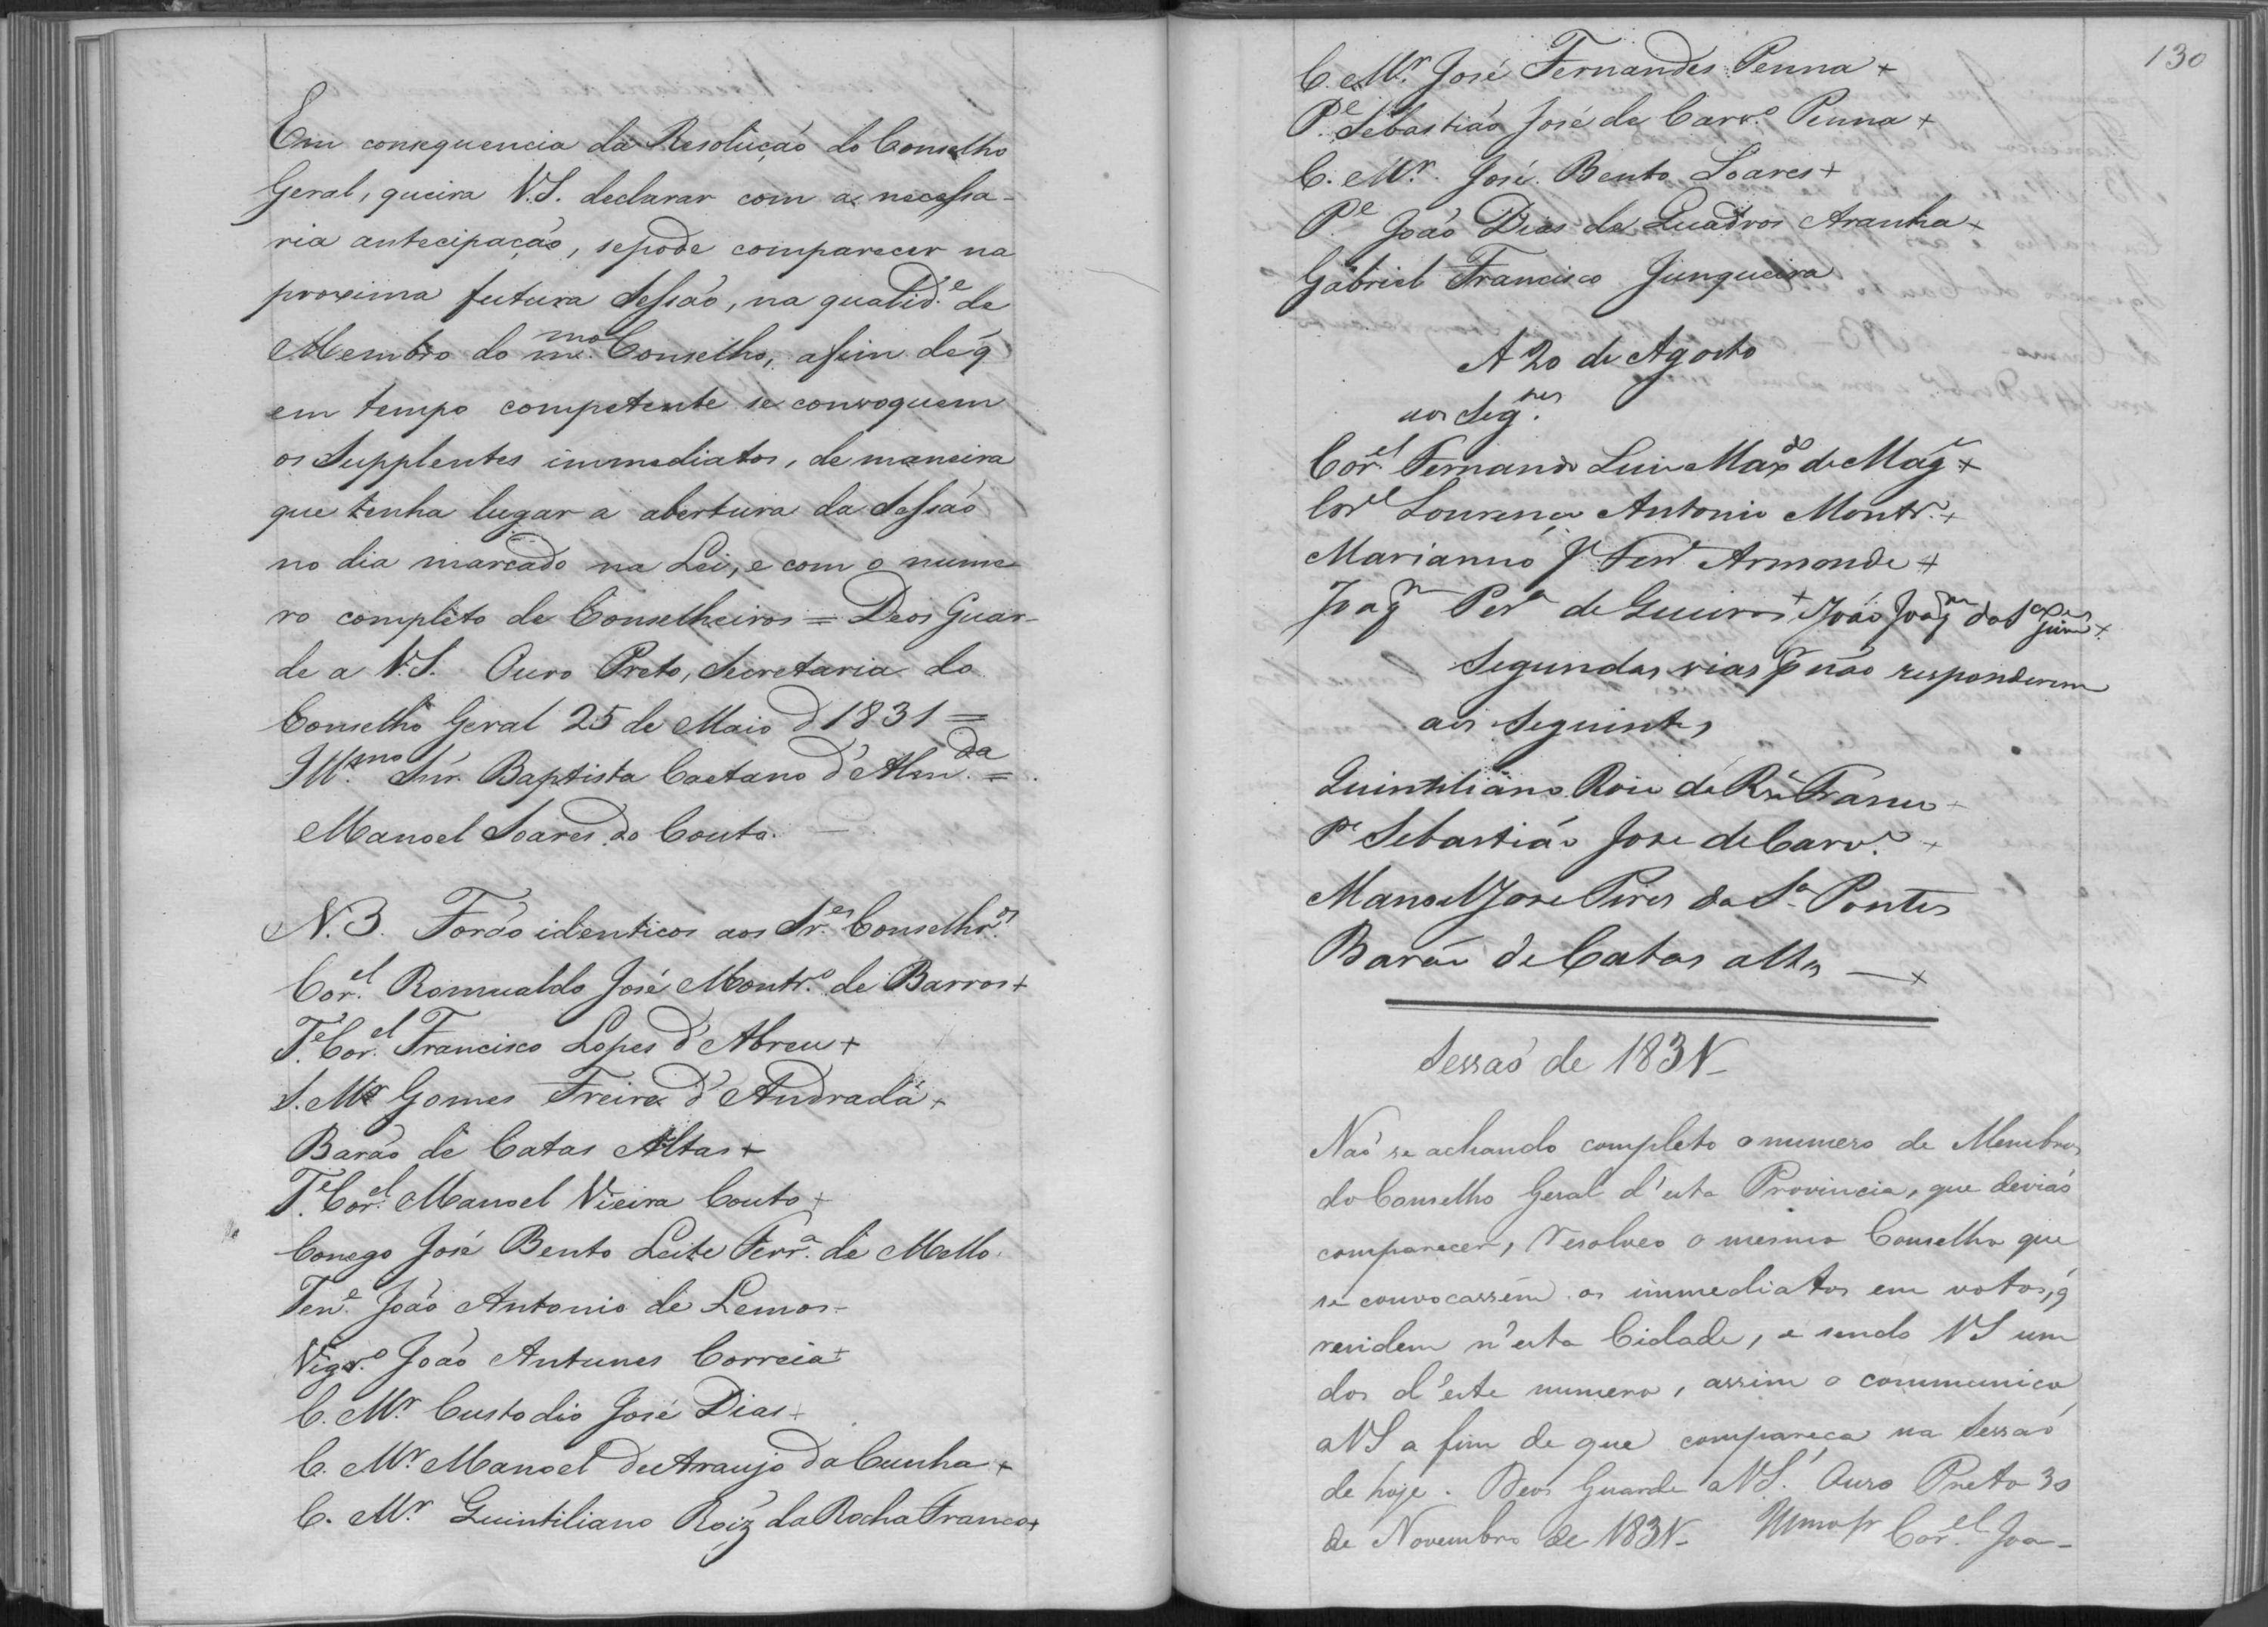 Em consequencia da Resolução do Conselho
Geral, queira V.S. declarar com a necessa-
ria antecipação, se pode comparecer na
proxima futura Sessão, na qualid.e de
Membro do m.mo Conselho, afim de q
em tempo competente se convoquem
os Supplentes immediatos, de maneira
que tenha lugar a abertura da Sessão
no dia marcado na Lei, e com o nume
ro completo de Conselheiros = Deos Guar-
de a V.S. Ouro Preto, Secretaria do
Conselho Geral 25 de Maio d'1831 =
Ill.mo Snr. Baptista Caetano d'Alm.da =
Manoel Soares do Couto.
N. 3. Forão identicos aos Sr.es Conselhr.os
Cor.el Romualdo José Montr.o de Barros +
T.e Cor.el Francisco Lopes d'Abreu +
S. Mr Gomes Freire d'Andrada +
Barão de Catas Altas +
T.e Cor.el Manoel Vieira Couto +
Conego José Bento Leite Ferr.a de Mello
Ten.e João Antonio de Lemos -
Vigr.o João Antunes Correia +
C. M.r Custodio José Dias +
C. M.r Manoel de Araujo da Cunha +
C. M.r Quintiliano Roiz da Rocha Franco +
130
C. M.r José Fernandes Penna +
P.e Sebastião José de Carv.o Penna +
C. M.r José Bento Soares +
P.e João Dias de Quadros Aranha +
Gabriel Francisco Junqueira
A 20 de Agosto
aos Seg.tes
Cor.el Fernando Luis Maxdo de Mag.e +
Cor.el Lourenço Antonio Montr.o +
Marianno J.e Ferr.a Armonde +
Joaq.m Per.a de Queiros + João Joaq.m da S.a Guim.es +
Segundas vias p não responderem
aos Seguintes
Quintiliano Roiz da R.a Franco +
P.e Sebastião Jose de Carv.o +
Manoel Jose Pires da S.a Pontes
Barão de Catas altas — +
Sessaõ de 1831-
Naõ se achando completo o numero de Membros
do Conselho Geral d'esta Provincia, que deviaõ
comparecer, resolveo o mesmo Conselho que
se convocassem os immediatos em votos, q
residem n'esta Cidade, e sendo VS um
dos d'este numero, assim o communico
a VS a fim de que compareça na Sessaõ
de hoje. Deos Guarde a VS. Ouro Preto 30
de Novembro de 1831- Illmo Sr Cor.el Joa-